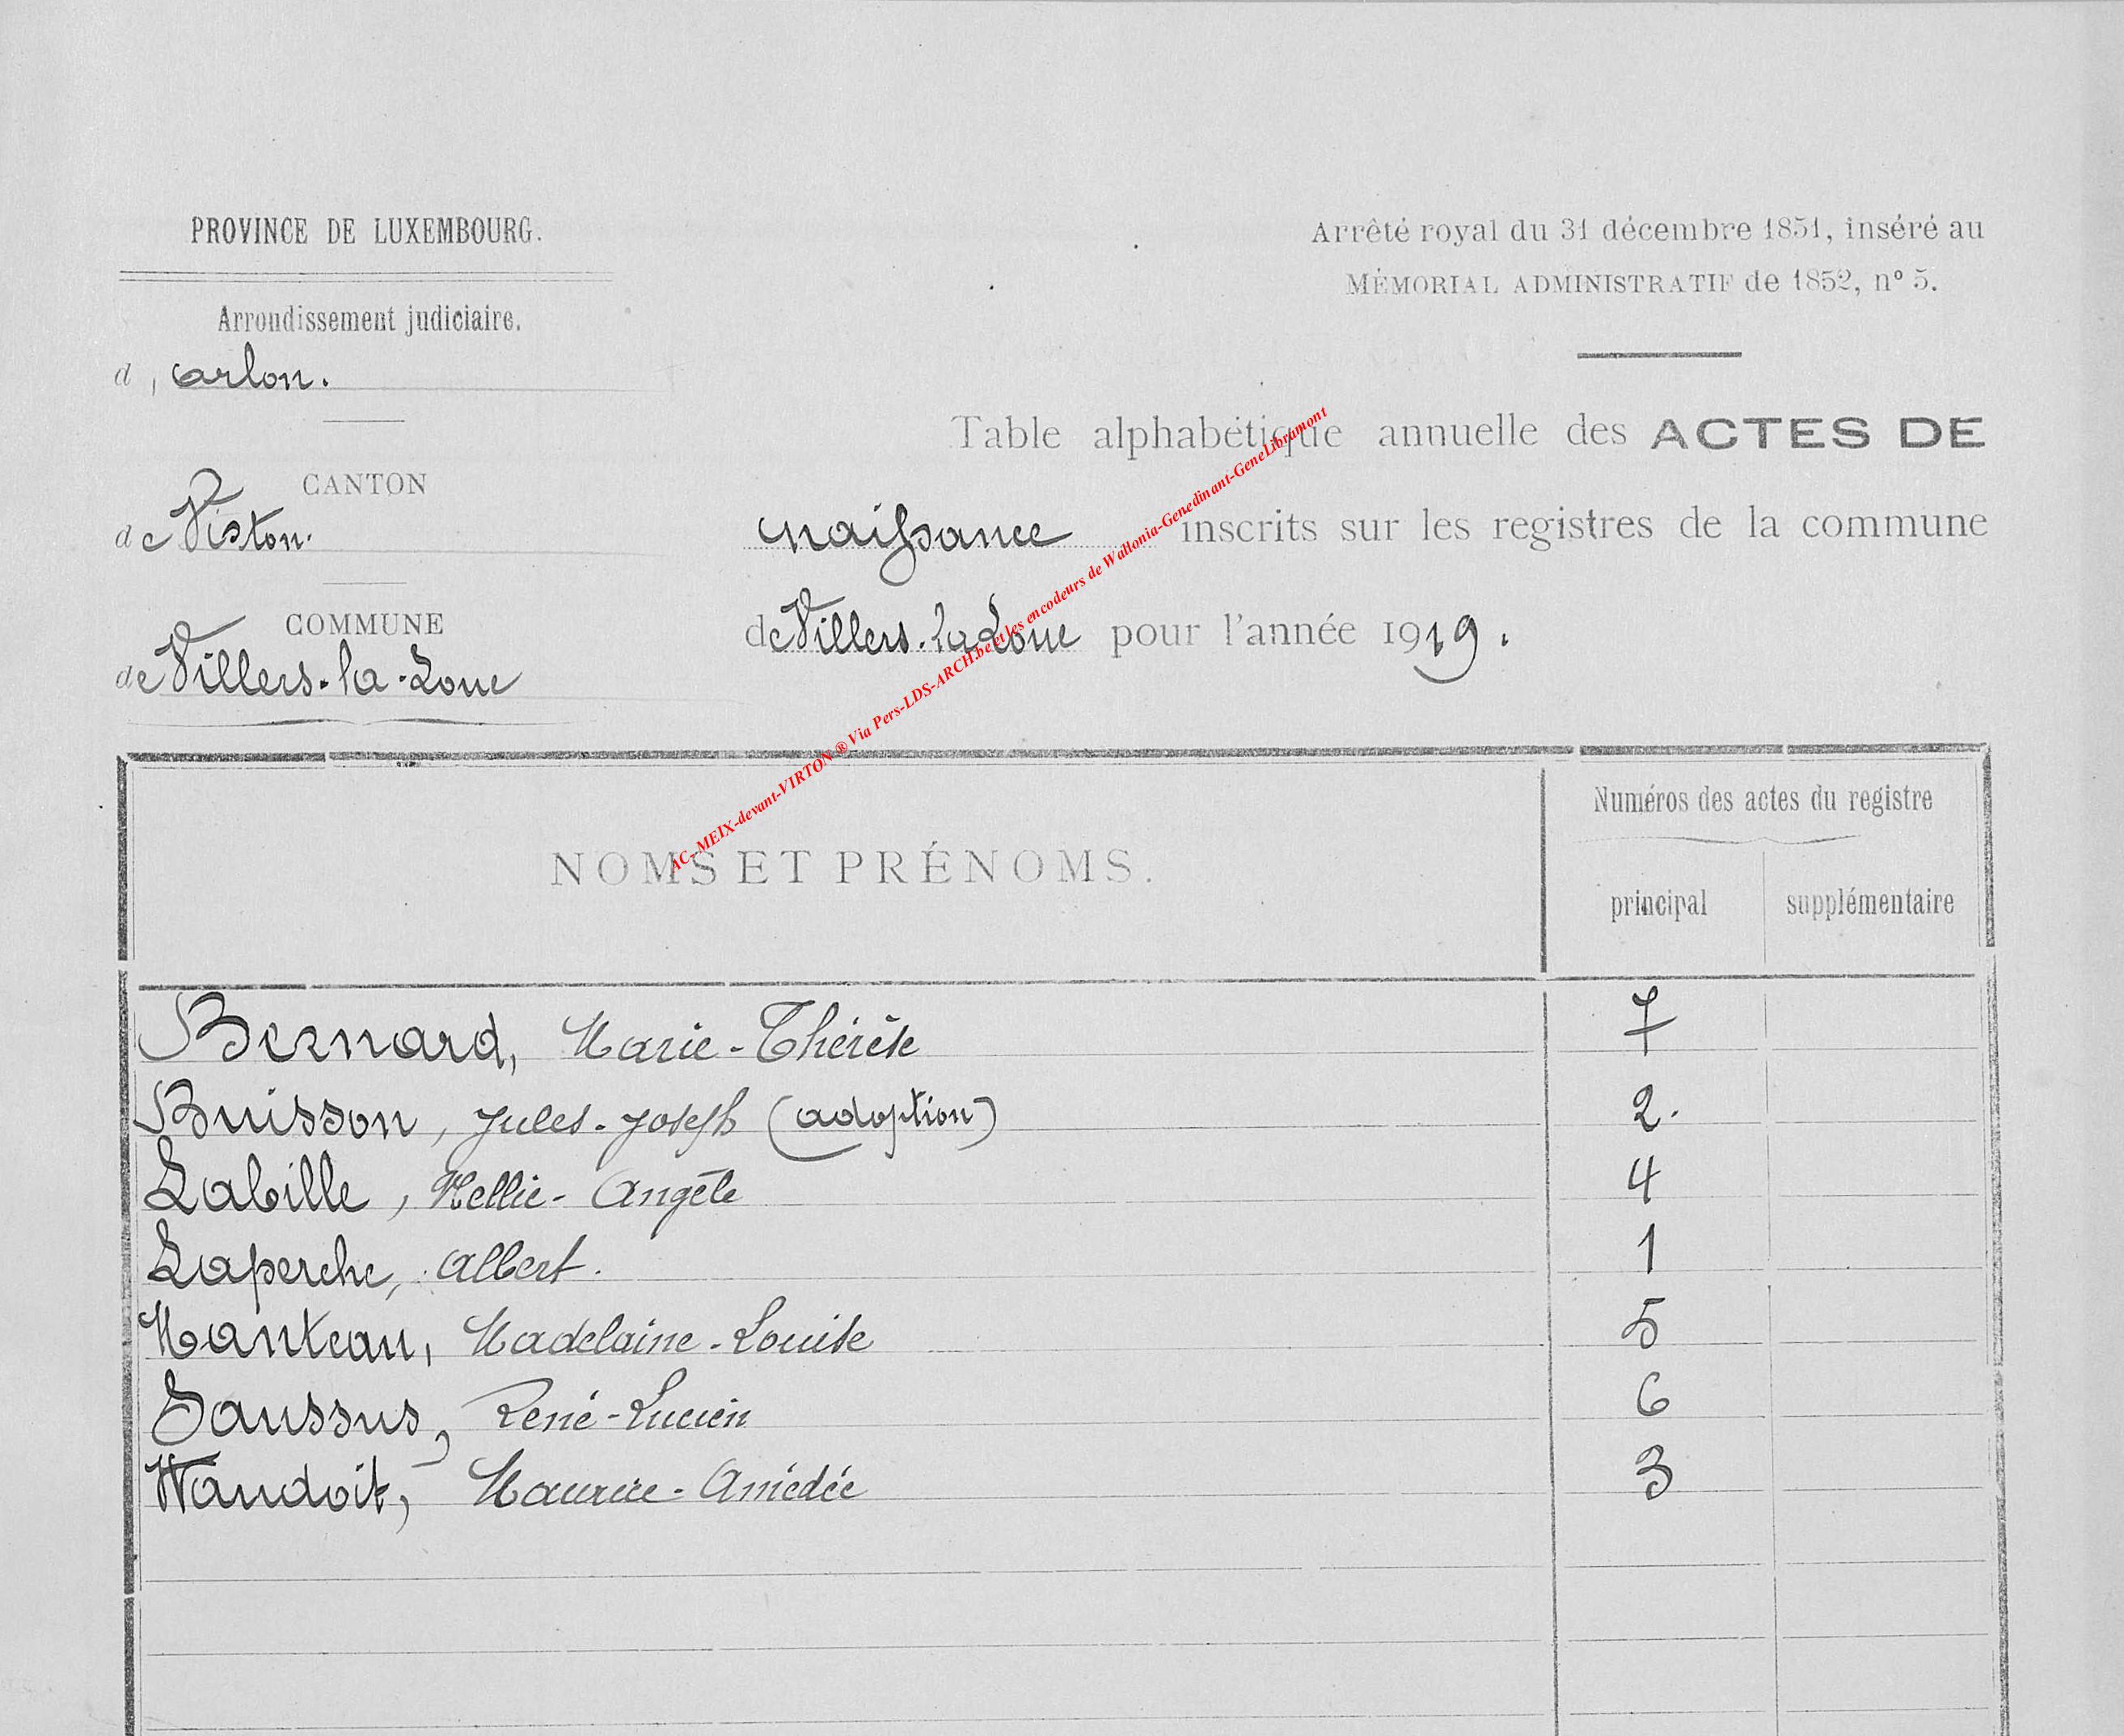 PROVINCE DE LUXEMBOURG.
Arrondissement judiciaire.
d, arlon.
CANTON
de Virton.
COMMUNE
de Villers-la-Loue
Arrêté royal du 31 décembre 1851, inséré au
MÉMORIAL ADMINISTRATIF de 1852, nº 5.
Table alphabétique annuelle des ACTES DE
naissance inscrits sur les registres de la commune
de Villers-la Loue pour l'année 1919.
AC-MEIX-devant-VIRTON ® Via Pers-LDS-ARCH.be et les encodeurs de Wallonia-Genedinant-GeneLibramont
NOMS ET PRÉNOMS.
Numéros des actes du registre
principal
supplémentaire
Bernard, Marie-Thérèse 7
Buisson, Jules-Joseph (adoption) 2.
Labille, Nellie-Angèle 4
Laperche, Albert. 1
Manteau, Madelaine-Louise 5
Saussus, René-Lucien 6
Waudoit, Maurice-Amédée 3